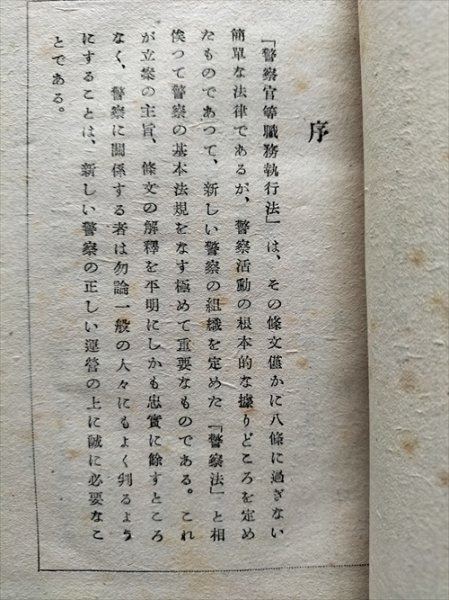 序
『警察官等職務執行法』は、その條文僅かに八條に過ぎない
簡單な法律であるが、警察活動の根本的な據りどころを定め
たものであつて、新しい警察の組織を定めた『警察法』と相
俟つて警察の基本法規をなす極めて重要なものである。これ
が立案の主旨、條文の解釋を平明にしかも忠實に餘すところ
なく、警察に關係する者は勿論一般の人々にもよく判るよう
にすることは、新しい警察の正しい運營の上に誠に必要なこ
とである。